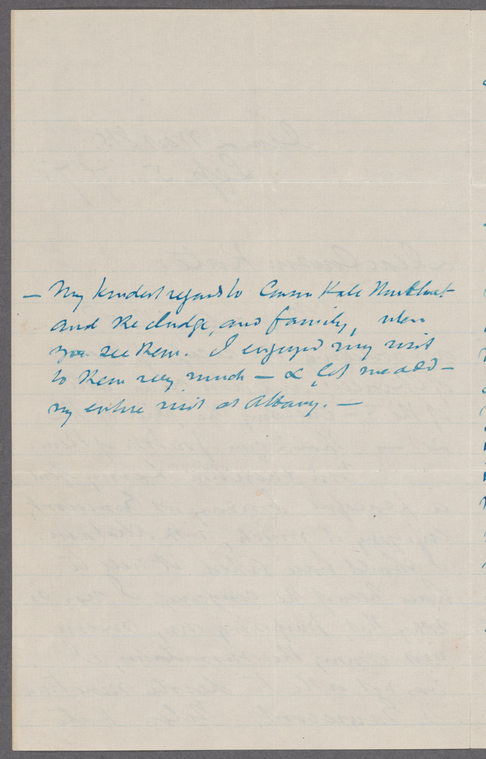 — My kindest regards to Cousin Kate
and the Judge, and family, when
you see them. I enjoyed my visit
to them very much — & let me add —
my entire visit at Albany. —